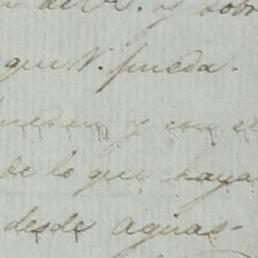 y sobr
que V. pueda.
y con el
de lo que haya
desde aguas-